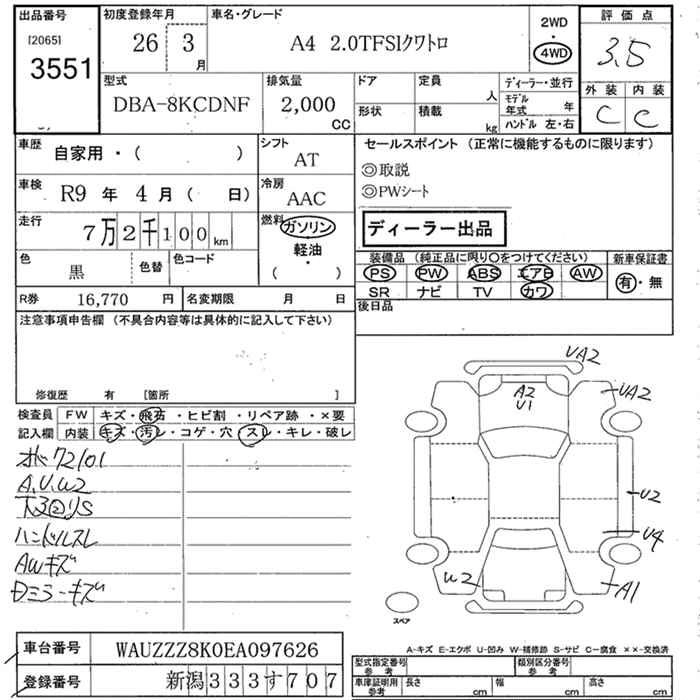 出品番号 初度登録年月 車名・グレード 2WD 評価点
[2065] 26 3月 A4 2.0TFSIクワトロ 4WD 3.5
3551
型式 排気量 ドア 定員 ディーラー・並行 外装 内装
DBA-8KCDNF 2,000 CC 人 モデル年式 年 C C
形状 積載 kg ハンドル 左・右
車歴 自家用・( ) シフト AT セールスポイント (正常に機能するものに限ります)
◎取説
車検 R9 年 4 月 ( 日) 冷房 AAC ◎PWシート
走行 7万2千100km 燃料 ガソリン ディーラー出品
軽油
( ・ )
色 黒 色替 色コード 装備品 (純正品に限り○をつけてください) 新車保証書
PS PW ABS エアB AW 有・無
R券 16,770 円 名変期限 月 日 SR ナビ TV カワ
注意事項申告欄 (不具合内容等は具体的に記入して下さい) 後日品
修復歴 有 [箇所 ]
検査員 FW キズ・飛石・ヒビ割・リペア跡・×要
記入欄 内装 キズ・汚レ・コゲ・穴・スレ・キレ・破レ
72101
A,U,W2
ハンドルスレ
AWキズ
Dミラーキズ
UA2
A2 UA2
U1
U2
U4
W2 A1
スペア
A-キズ E-エクボ U-凹み W-補修跡 S-サビ C-腐食 ××-交換済
車台番号 WAUZZZ8K0EA097626
登録番号 新潟333す707
型式指定番号 参考 類別区分番号 参考
車庫証明用 参考 長さ cm 幅 cm 高さ cm